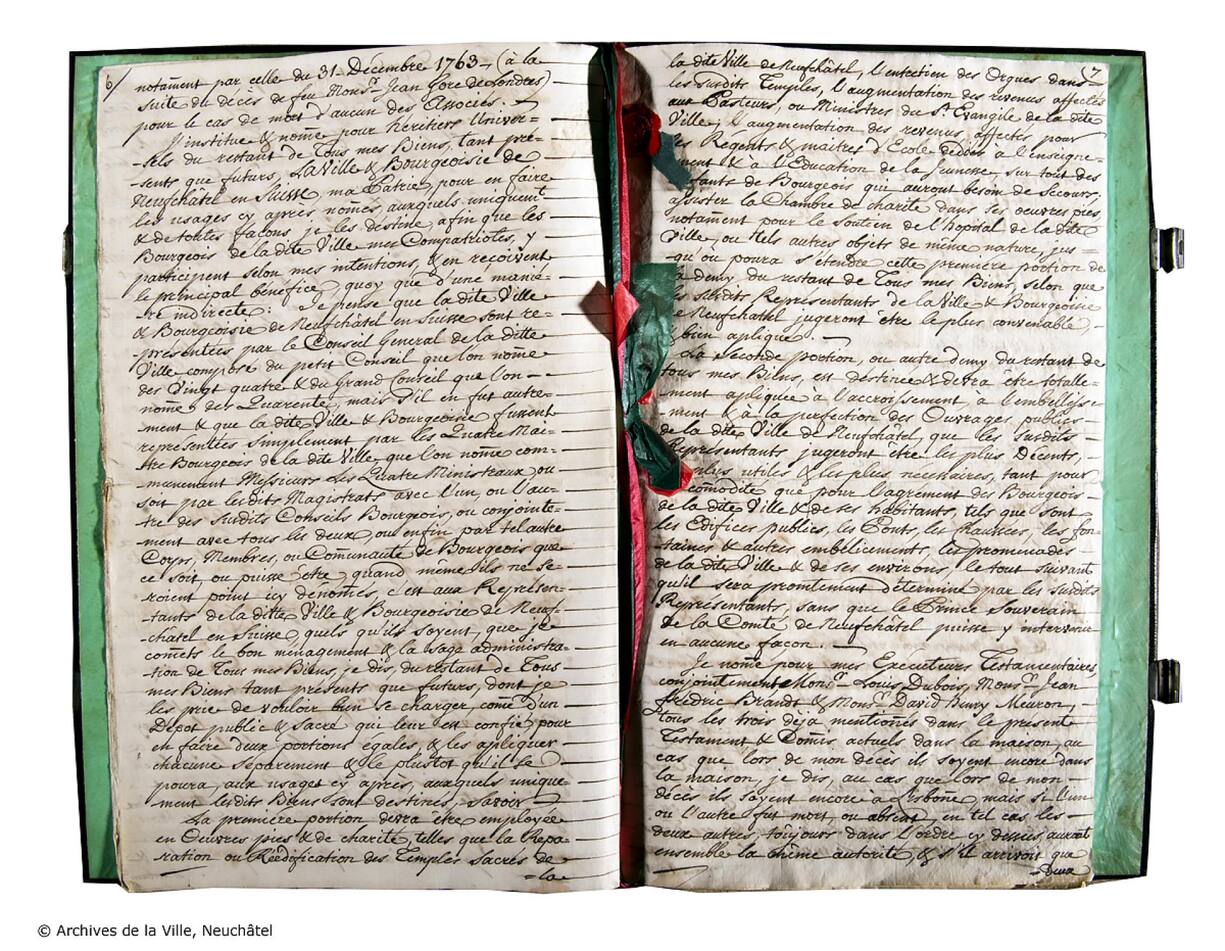 6/
notament par celle du 31. Décembre 1763. (à la
suite du décès de feu Monsr. Jean Gore de Londres)
pour le cas de mort d'aucun des Associés.
J'institue & nome pour héritiers Univer=
=sels du restant de Tous mes Biens, tant pré=
=sents que futurs, La Ville & Bourgeoisie de
Neufchâtel en Suisse ma Patrie, pour en faire
les usages cy après només, auxquels uniquemt.
& de toutes façons je les destine, afin que les
Bourgeois de la dite Ville mes Compatriotes, y
participent selon mes intentions, & en reçoivent
le principal bénéfice, quoy que d'une maniè=
=re indirecte: Je pense que la dite Ville
& Bourgeoisie de Neufchâtel en Suisse sont re=
=présentées par le Conseil General de la ditte
Ville composé du petit Conseil que l'on nome
des Vingt quatre & du Grand Conseil que l'on
nome des Quarente, mais s'il en fut autre=
=ment & que la dite Ville & Bourgeoisie fussent
représentées simplement par les Quatre Mai=
=tre Bourgeois de la dite Ville, que l'on nome com=
=munement Messieurs les Quatre Ministraux, ou
soit par lesdits Magistrats avec l'un, ou l'au=
=tre des Susdits Conseils Bourgeois, ou conjointe=
=ment avec tous les deux, ou enfin par tel autre
Corps, Membres, ou Comunauté de Bourgeois que
ce soit, ou puisse être, quand même ils ne se=
=roient point icy dénomés, c'est aux Représen=
=tants de la ditte Ville & Bourgeoisie de Neuf=
=châtel en Suisse, quels qu'ils soyent, que je
comets le bon ménagement & la sage administra=
=tion de Tous mes Biens, je dis, du restant de Tous
mes Biens tant présents que futurs, dont je
les prie de vouloir bien se charger, come d'un
Dépôt public & Sacré qui leur est confié, pour
en faire deux portions égales, & les apliquer
chacune séparément & le plustot qu'il se
poura, aux usages cy après, auxquels unique=
=ment lesdits Biens sont destinés, Savoir
La première portion devra être employée
en Oeuvres pies & de charité, telles que la Répa=
=ration ou Réédification des Temples Sacrés de
=la
7
la dite Ville de Neufchâtel, l'entretien des Orgues dans
les Susdits Temples, l'augmentation des revenus affectés
aux Pasteurs, ou Ministres du St. Evangile de la dite
Ville; l'augmentation des revenus affectés pour
les Régents & maitres d'Ecole dédiés à l'enseigne=
=ment & à l'Education de la Jeunesse, sur tout des
enfants de Bourgeois qui auront besoin de secours,
assister la Chambre de charité dans ses oeuvres pies,
notament pour le Soutien de l'hopital de la dite
Ville, ou tels autres objets de même nature, jus=
qu'ou poura s'étendre cette première portion de
la demy du restant de Tous mes Biens, selon que
les susdits Représentants de la Ville & Bourgeoisie
de Neufchâtel jugeront être le plus convenable,
& bien apliqué.
La Seconde portion, ou autre demy du restant de
tous mes Biens, est destinée & devra être totalle=
=ment apliquée à l'accroissement à l'embélisse=
=ment & à la perfection des Ouvrages publics
de la dite Ville de Neufchâtel, que les susdits
Représentants jugeront être les plus Décents,
plus utiles & les plus nécessaires, tant pour
comodité que pour l'agrément des Bourgeois
de la dite Ville & de ses habitants, tels que sont
les Edifices publics, les Ponts, les Chaussées, les fon=
=taines & autres embélicements, les promenades
de la dite Ville & de ses environs, le tout suivant
qu'il sera promtement déterminé par les susdits
Représentants, sans que le Prince Souverain
de la Comté de Neufchâtel puisse y intervenir
en aucune façon.
Je nome pour mes Executeurs Testamentaires,
conjointement Monsr. Louis Dubois, Monsr. Jean
fredric Brandt & Monsr. David Pury Meuron,
tous les trois déja mentionés dans le présent
Testament & Domis actuels dans la maison, au
cas que lors de mon décès ils soyent encore dans
la maison, je dis, au cas que lors de mon
décès ils soyent encore à Lisbone, mais si l'un
ou l'autre fut mort, ou absent, en tel cas les
deux autres, toujours dans l'ordre cy dessus auront
ensemble la même autorité, & s'il arrivoit que
=deux
© Archives de la Ville, Neuchâtel